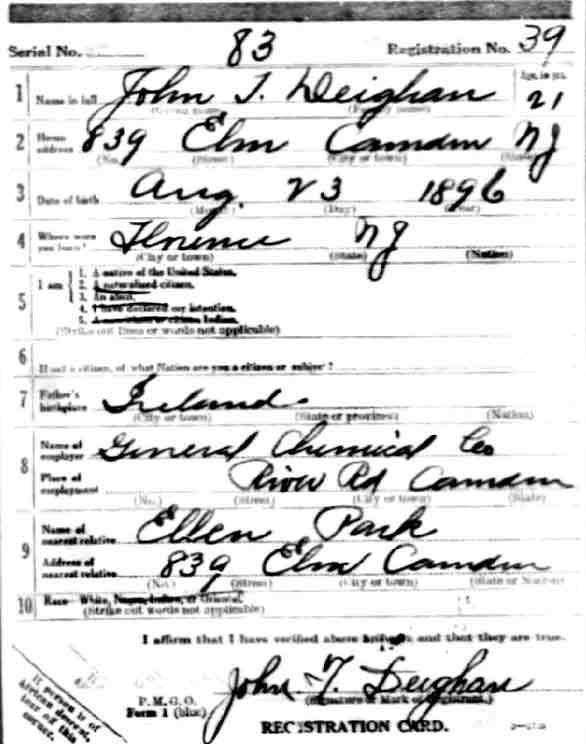 Serial No. 83 Registration No. 39
1 Name in full John T. Deighan Age, in yrs. 21
(Given name) (Family name)
2 Home address 839 Elm Camden NJ
(No.) (Street) (City or town) (State)
3 Date of birth Aug. 23 1896
(Month) (Day) (Year)
4 Where were you born? Florence NJ
(City or town) (State) (Nation)
5 I am
1. A native of the United States.
2. A naturalized citizen.
3. An alien.
4. I have declared my intention.
5. A noncitizen or citizen Indian.
(Strike out lines or words not applicable)
6 If not a citizen, of what Nation are you a citizen or subject?
7 Father's birthplace Ireland.
(City or town) (State or province) (Nation)
8 Name of employer General Chemical Co
Place of employment River Rd Camden
(No.) (Street) (City or town) (State)
9 Name of nearest relative Ellen Park
Address of nearest relative 839 Elm Camden
(No.) (Street) (City or town) (State or Nation)
10 Race—White, Negro, Indian, or Oriental
(Strike out words not applicable)
I affirm that I have verified above answers and that they are true.
John T. Deighan
P. M. G. O.
Form 1 (blue)
(Signature or Mark of Registrant.)
REGISTRATION CARD.
If person is of
African descent,
tear off this
corner.